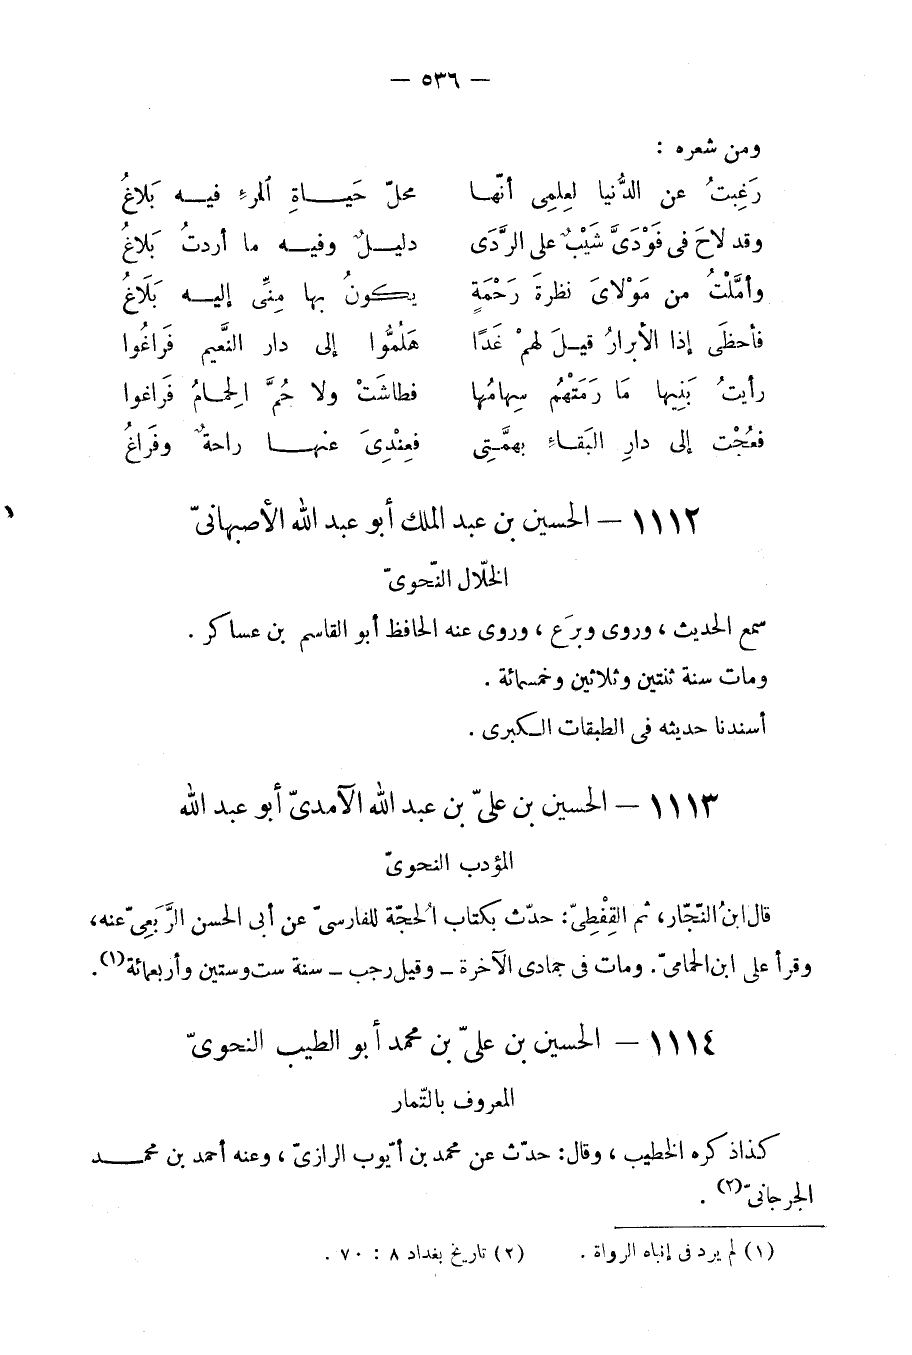 — ٥٣٦ —
ومن شعره :
رَغِبتُ عن الدُّنيا لِعلِمِى أنّها محلّ حَياةِ المرءِ فيه بَلاغُ
وقد لاحَ فى فَوْدَىَّ شَيْبٌ على الرَّدَى دليلٌ وفيه ما أردتُ بَلاغُ
وأمَّلْتُ من مَوْلاىَ نظرةَ رَحْمَةٍ يكونُ بها مِنِّى إليه بَلَاغُ
فأحظَى إذا الأبرارُ قيلَ لهمْ غَدًا هَلُمُّوا إلى دار النَّعيم فَراغُوا
رأيتُ بَنِيها مَا رَمَتْهُم سِهامُها فطاشَتْ ولا حُمَّ الحِمامُ فَراغوا
فعُجْت إلى دارِ البَقاءِ بهمَّتِى فعِنْدِىَ عنها راحةٌ وفَراغُ
١١١٢ — الحسين بن عبد الملك أبو عبد الله الأصبهانىّ
الخلّال النّحوىّ
سمع الحديث ، وروى وبرَع ، وروى عنه الحافظ أبو القاسم بن عساكر .
ومات سنة ثنتين وثلاثين وخمسمائة .
أسندنا حديثه فى الطبقات الكبرى .
١١١٣ — الحسين بن علىّ بن عبد الله الآمدىّ أبو عبد الله
المؤدب النحوىّ
قال ابنُ النّجّار، ثم القِفْطِىّ: حدّث بكتاب الحجّة للفارسىّ عن أبى الحسن الرَّبَعِىّ عنه،
وقرأ على ابن الحمامىّ. ومات فى جمادى الآخرة – وقيل رجب – سنة ست وستين وأربعمائة(١).
١١١٤ — الحسين بن علىّ بن محمد أبو الطيب النحوىّ
المعروف بالتّمار
كذا ذكره الخطيب ، وقال: حدّث عن محمد بن أيّوب الرازىّ ، وعنه أحمد بن محمد
الجرجانىّ(٢) .
(١) لم يرد فى إنباه الرواة . (٢) تاريخ بغداد ٨ : ٧٠ .